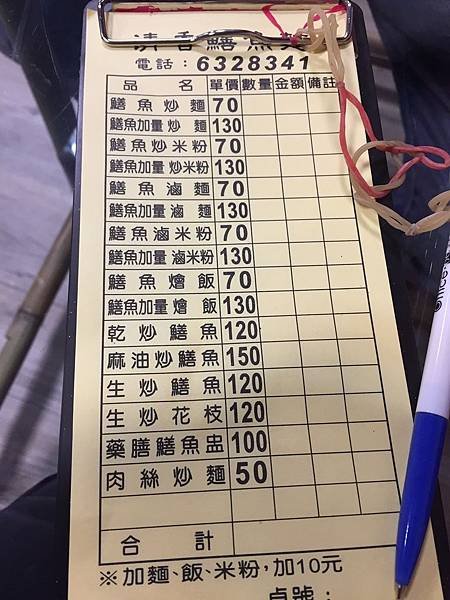 清香鱔魚
電話：6328341
品名 單價 數量 金額 備註
鱔魚炒麵 70
鱔魚加量炒麵 130
鱔魚炒米粉 70
鱔魚加量炒米粉 130
鱔魚滷麵 70
鱔魚加量滷麵 130
鱔魚滷米粉 70
鱔魚加量滷米粉 130
鱔魚燴飯 70
鱔魚加量燴飯 130
乾炒鱔魚 120
麻油炒鱔魚 150
生炒鱔魚 120
生炒花枝 120
藥膳鱔魚盅 100
肉絲炒麵 50
合計
※加麵、飯、米粉，加10元
桌號：